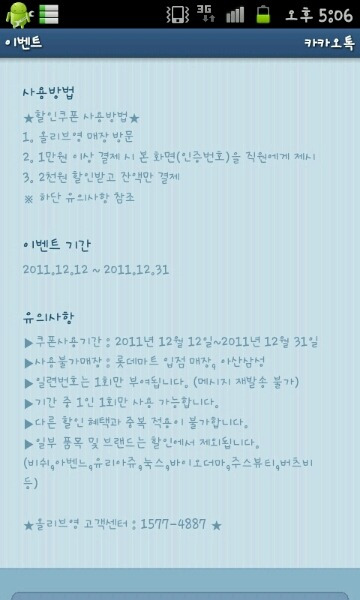 3G 오후 5:06
이벤트 카카오톡
사용방법
★할인쿠폰 사용방법★
1. 올리브영 매장 방문
2. 1만원 이상 결제 시 본 화면(인증번호)을 직원에게 제시
3. 2천원 할인받고 잔액만 결제
※ 하단 유의사항 참조
이벤트 기간
2011.12.12 ~ 2011.12.31
유의사항
▶쿠폰사용기간 : 2011년 12월 12일~2011년 12월 31일
▶사용불가매장 : 롯데마트 입점 매장, 아산삼성
▶일련번호는 1회만 부여됩니다. (메시지 재발송 불가)
▶기간 중 1인 1회만 사용 가능합니다.
▶다른 할인 혜택과 중복 적용이 불가합니다.
▶일부 품목 및 브랜드는 할인에서 제외됩니다.
(비쉬,아벤느,유리아쥬,눅스,바이오더마,주스뷰티,버츠비
등)
★올리브영 고객센터 : 1577-4887 ★